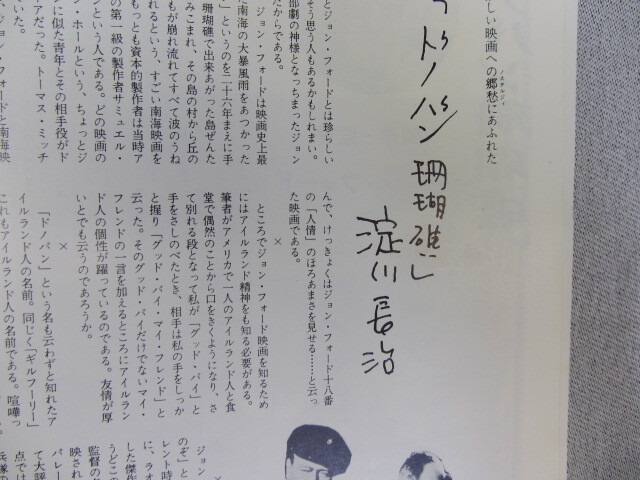 しい映画への郷愁にあふれた
ノスタルジィ
ドノバン珊瑚礁
淀川長治
とジョン・フォードとは珍らしい
そう思う人もあるかもしれまい。
部劇の神様となっちまったジョン
たからである。
ジョン・フォードは映画史上最
た南海の大暴風雨をあつかった
」というのを二十六年まえに手
珊瑚礁で出来あがった島ぜんた
みこまれ、その島の村から丘の
もが崩れ流れてすべて波のうね
れるという、すごい南海映画を
もっとも資本的製作者は当時ア
の第一級の製作者サミュエル・
ンという人である。どの映画の
ン・ホールという、ちょっとジ
に似た青年とその相手役がド
アだった。トーマス・ミッチ
ていた。
ジョン・フォードと南海映
んで、けっきょくはジョン・フォード十八番
の「人情」のほろあまさを見せる……と云っ
た映画である。
×
ところでジョン・フォード映画を知るため
にはアイルランド精神をも知る必要がある。
筆者がアメリカで一人のアイルランド人と食
堂で偶然のことから口をきくようになり、さ
て別れる段となって私が「グッド・バイ」と
手をさしのべたとき、相手は私の手をしっか
と握り「グッド・バイ・マイ・フレンド」と
云った。そのグッド・バイだけでないマイ・
フレンドの一言を加えるところにアイルラン
ド人の個性が躍っているのである。友情が厚
いとでも云うのであろうか。
×
「ドノバン」という名も云わずと知れたア
イルランド人の名前。同じく「ギルフーリー」
これもアイルランド人の名前である。喧嘩っ
×
ジョン・
のぞ」と
レント時
に、ラオ
した傑作
うどこの
監督の名
映され
パレー
て大呼
点では
兵隊の